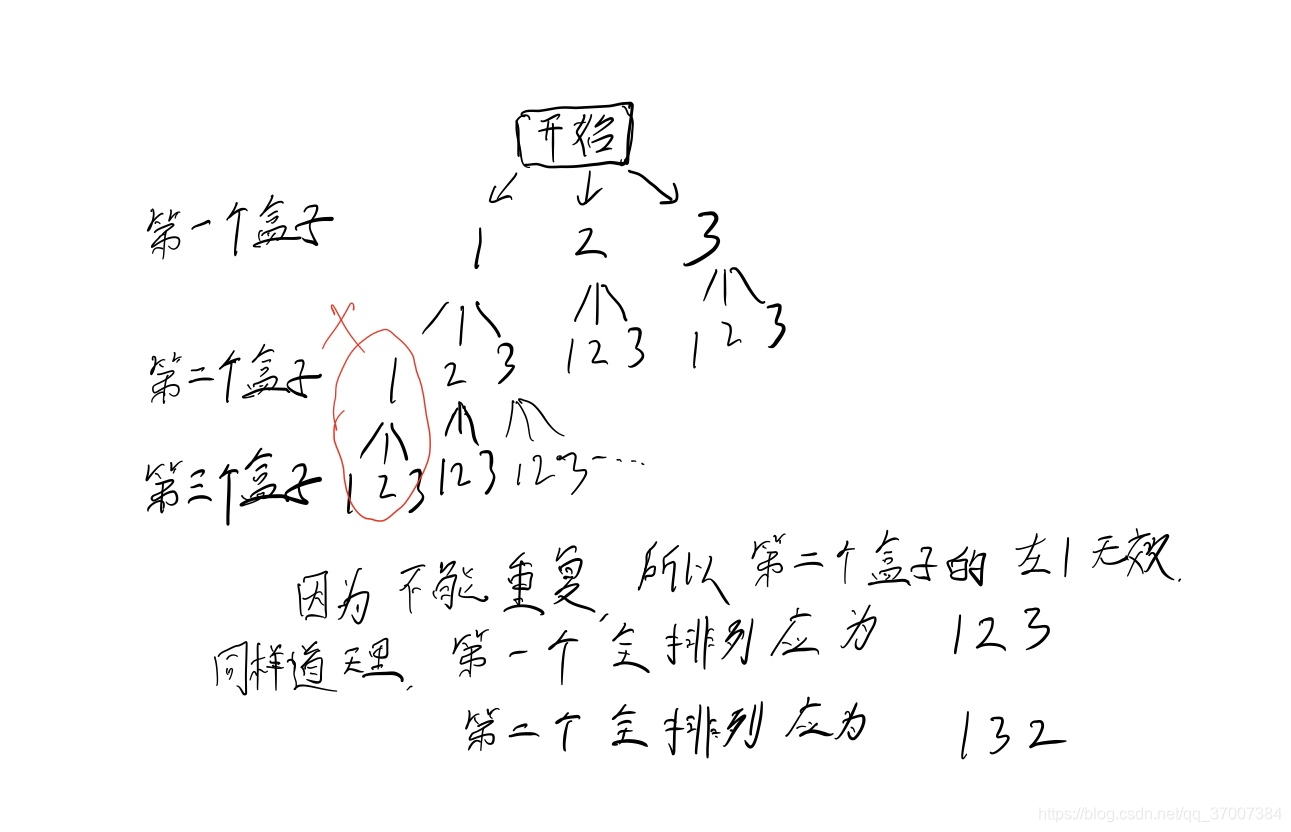 开始
第一个盒子 1 2 3
第二个盒子 1 2 3 1 2 3 1 2 3
第三个盒子 1 2 3 1 2 3 1 2 3 ....
因为不能重复,所以第二个盒子的左1无效.
同样道理,第一个全排列应为 1 2 3
第二个全排列应为 1 3 2
https://blog.csdn.net/qq_37007384